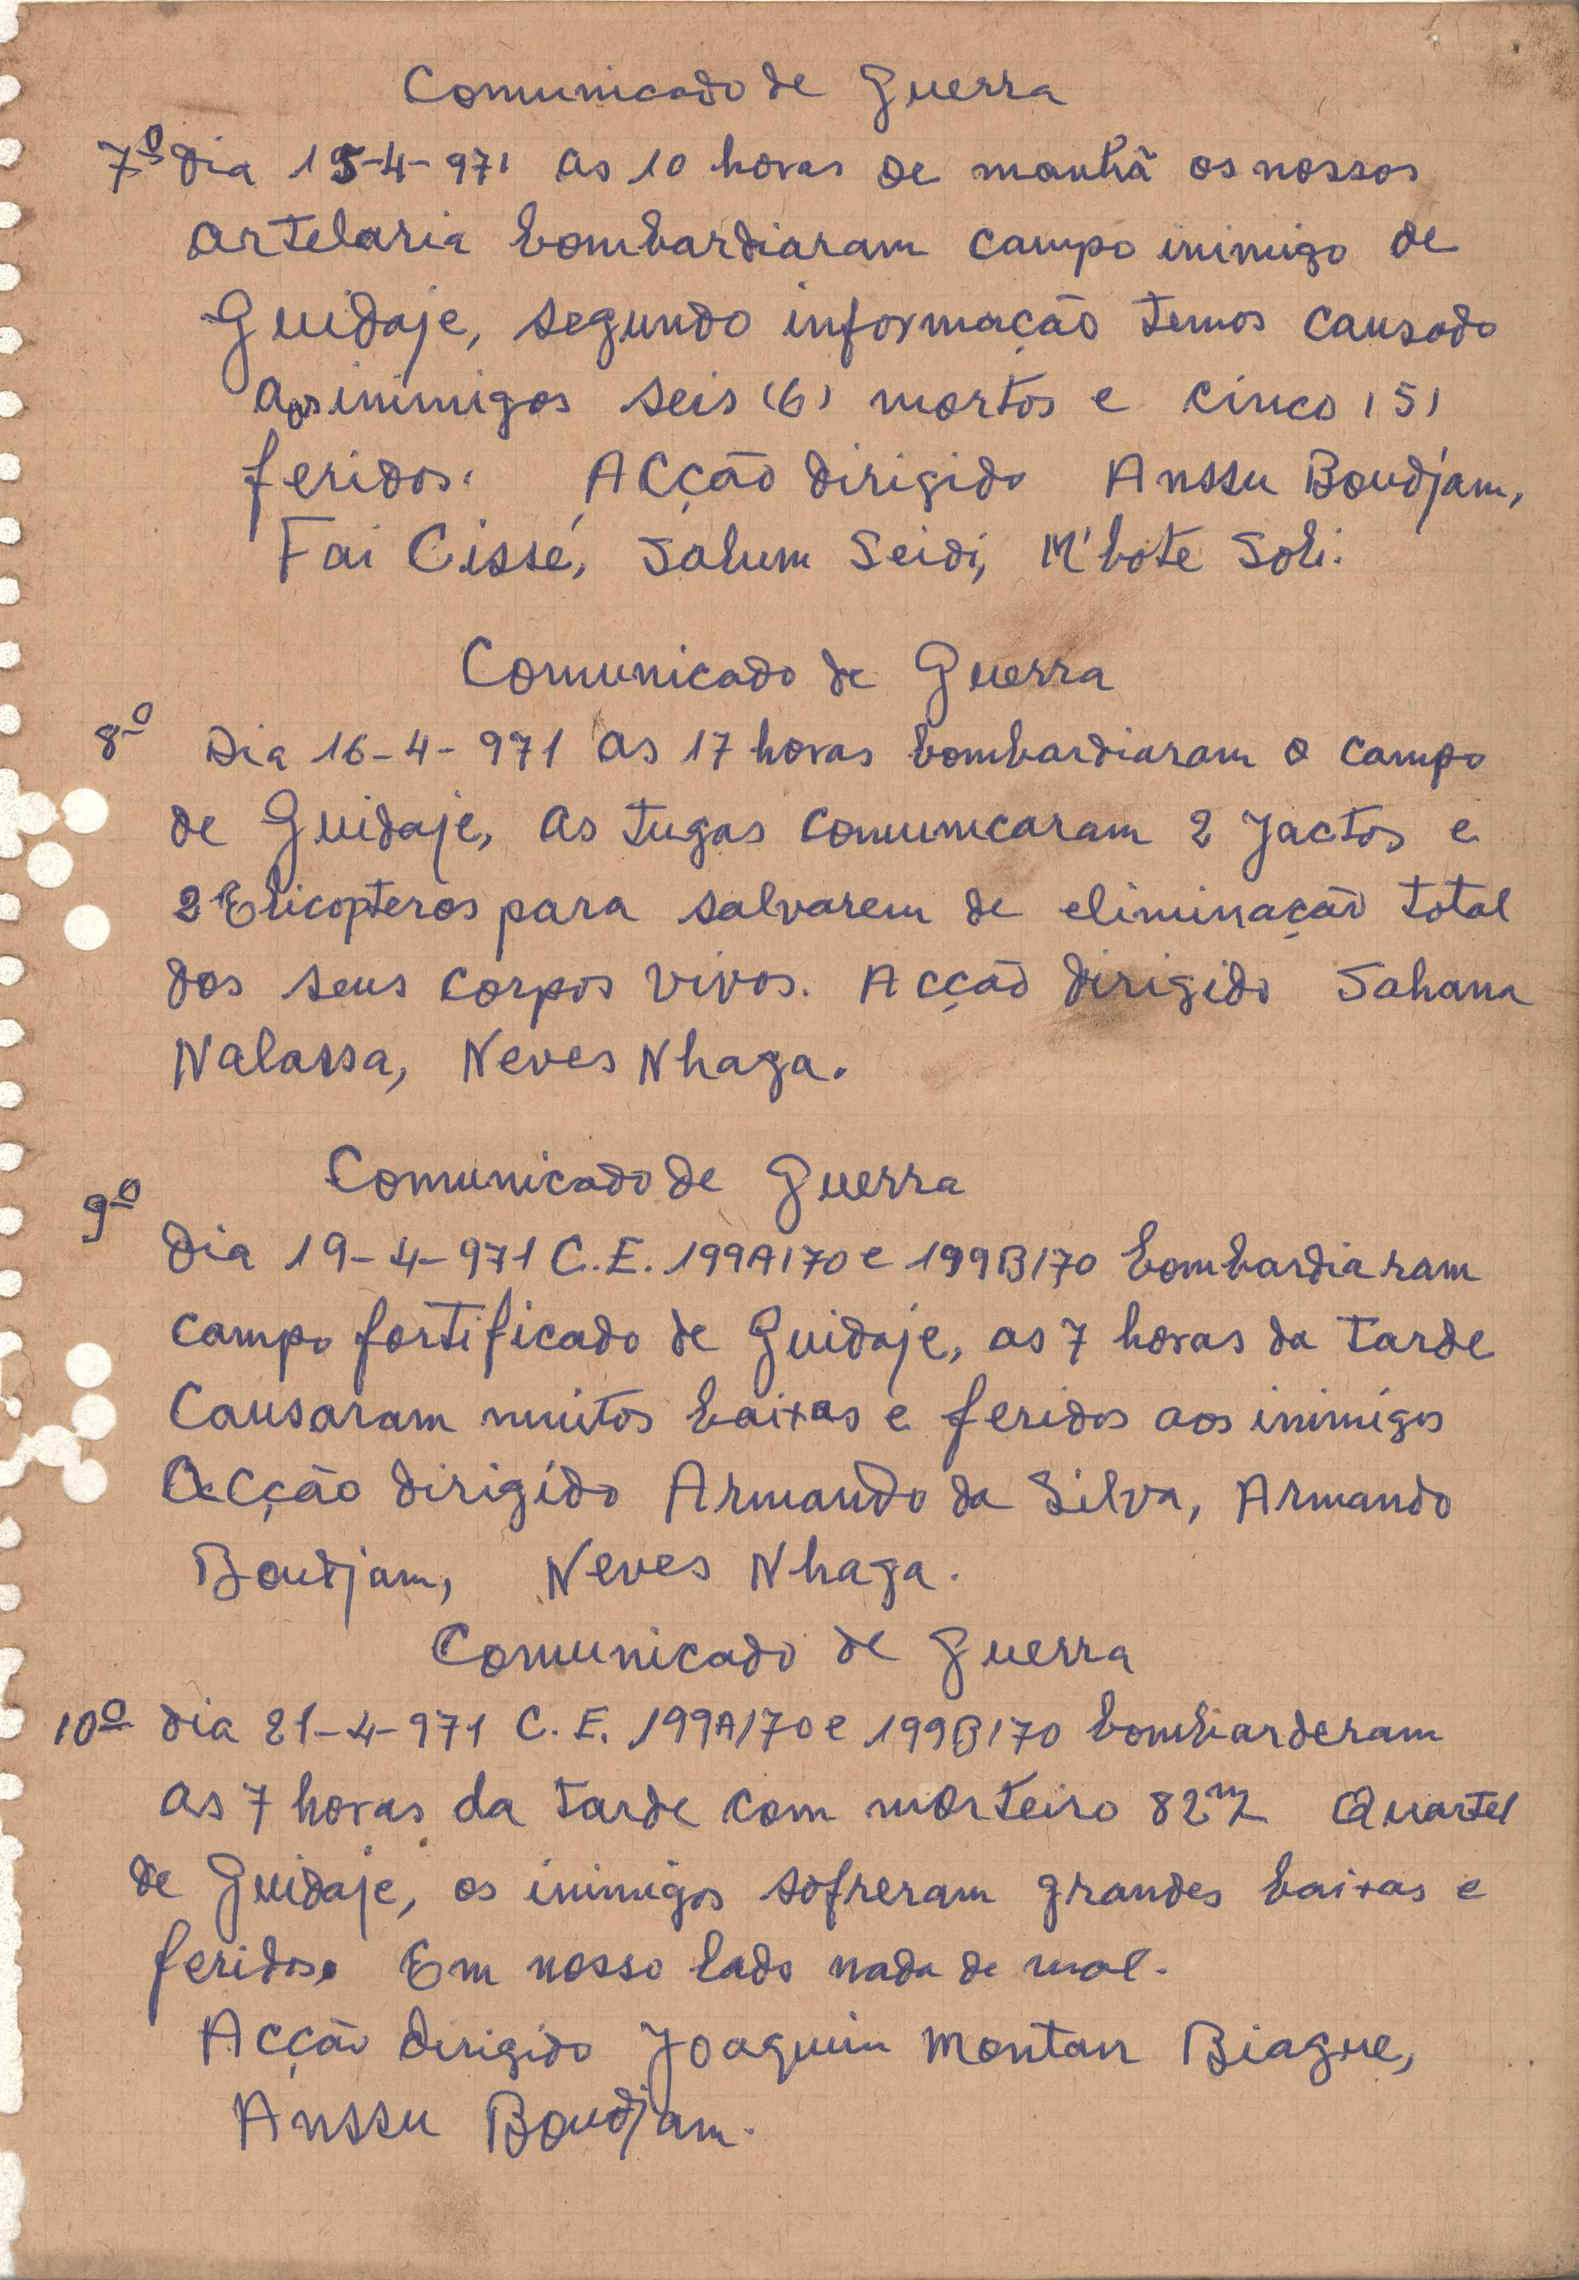 Comunicado de Guerra
7º Dia 15-4-971 as 10 horas de manhã os nossos
artelaria bombardiaram campo inimigo de
Guidaje, segundo informação temos causado
aos inimigos seis (6) mortos e cinco (5)
feridos. Acção dirigido Anssu Boudjam,
Fai Cissé, Salum Seidi, M'bote Soli.
Comunicado de Guerra
8º Dia 16-4-971 as 17 horas bombardiaram o campo
de Guidaje, as tugas comunicaram 2 Jactos e
2 Elicopteros para salvarem de eliminação total
dos seus corpos vivos. Acção dirigido Sahana
Nalassa, Neves Nhaga.
Comunicado de Guerra
9º
Dia 19-4-971 C.E. 199A/70 e 199B/70 bombardiaram
campo fortificado de Guidaje, as 7 horas da tarde
Causaram muitos baixas e feridos aos inimigos
Acção dirigido Armando da Silva, Armando
Boudjam, Neves Nhaga.
Comunicado de Guerra
10º dia 21-4-971 C.E. 199A/70 e 199B/70 bombarderam
as 7 horas da tarde com morteiro 82 Quartel
de Guidaje, os inimigos sofreram grandes baixas e
feridos. Em nosso lado nada de mal.
Acção dirigido Joaquim Montan Biague,
Anssu Boudjam.